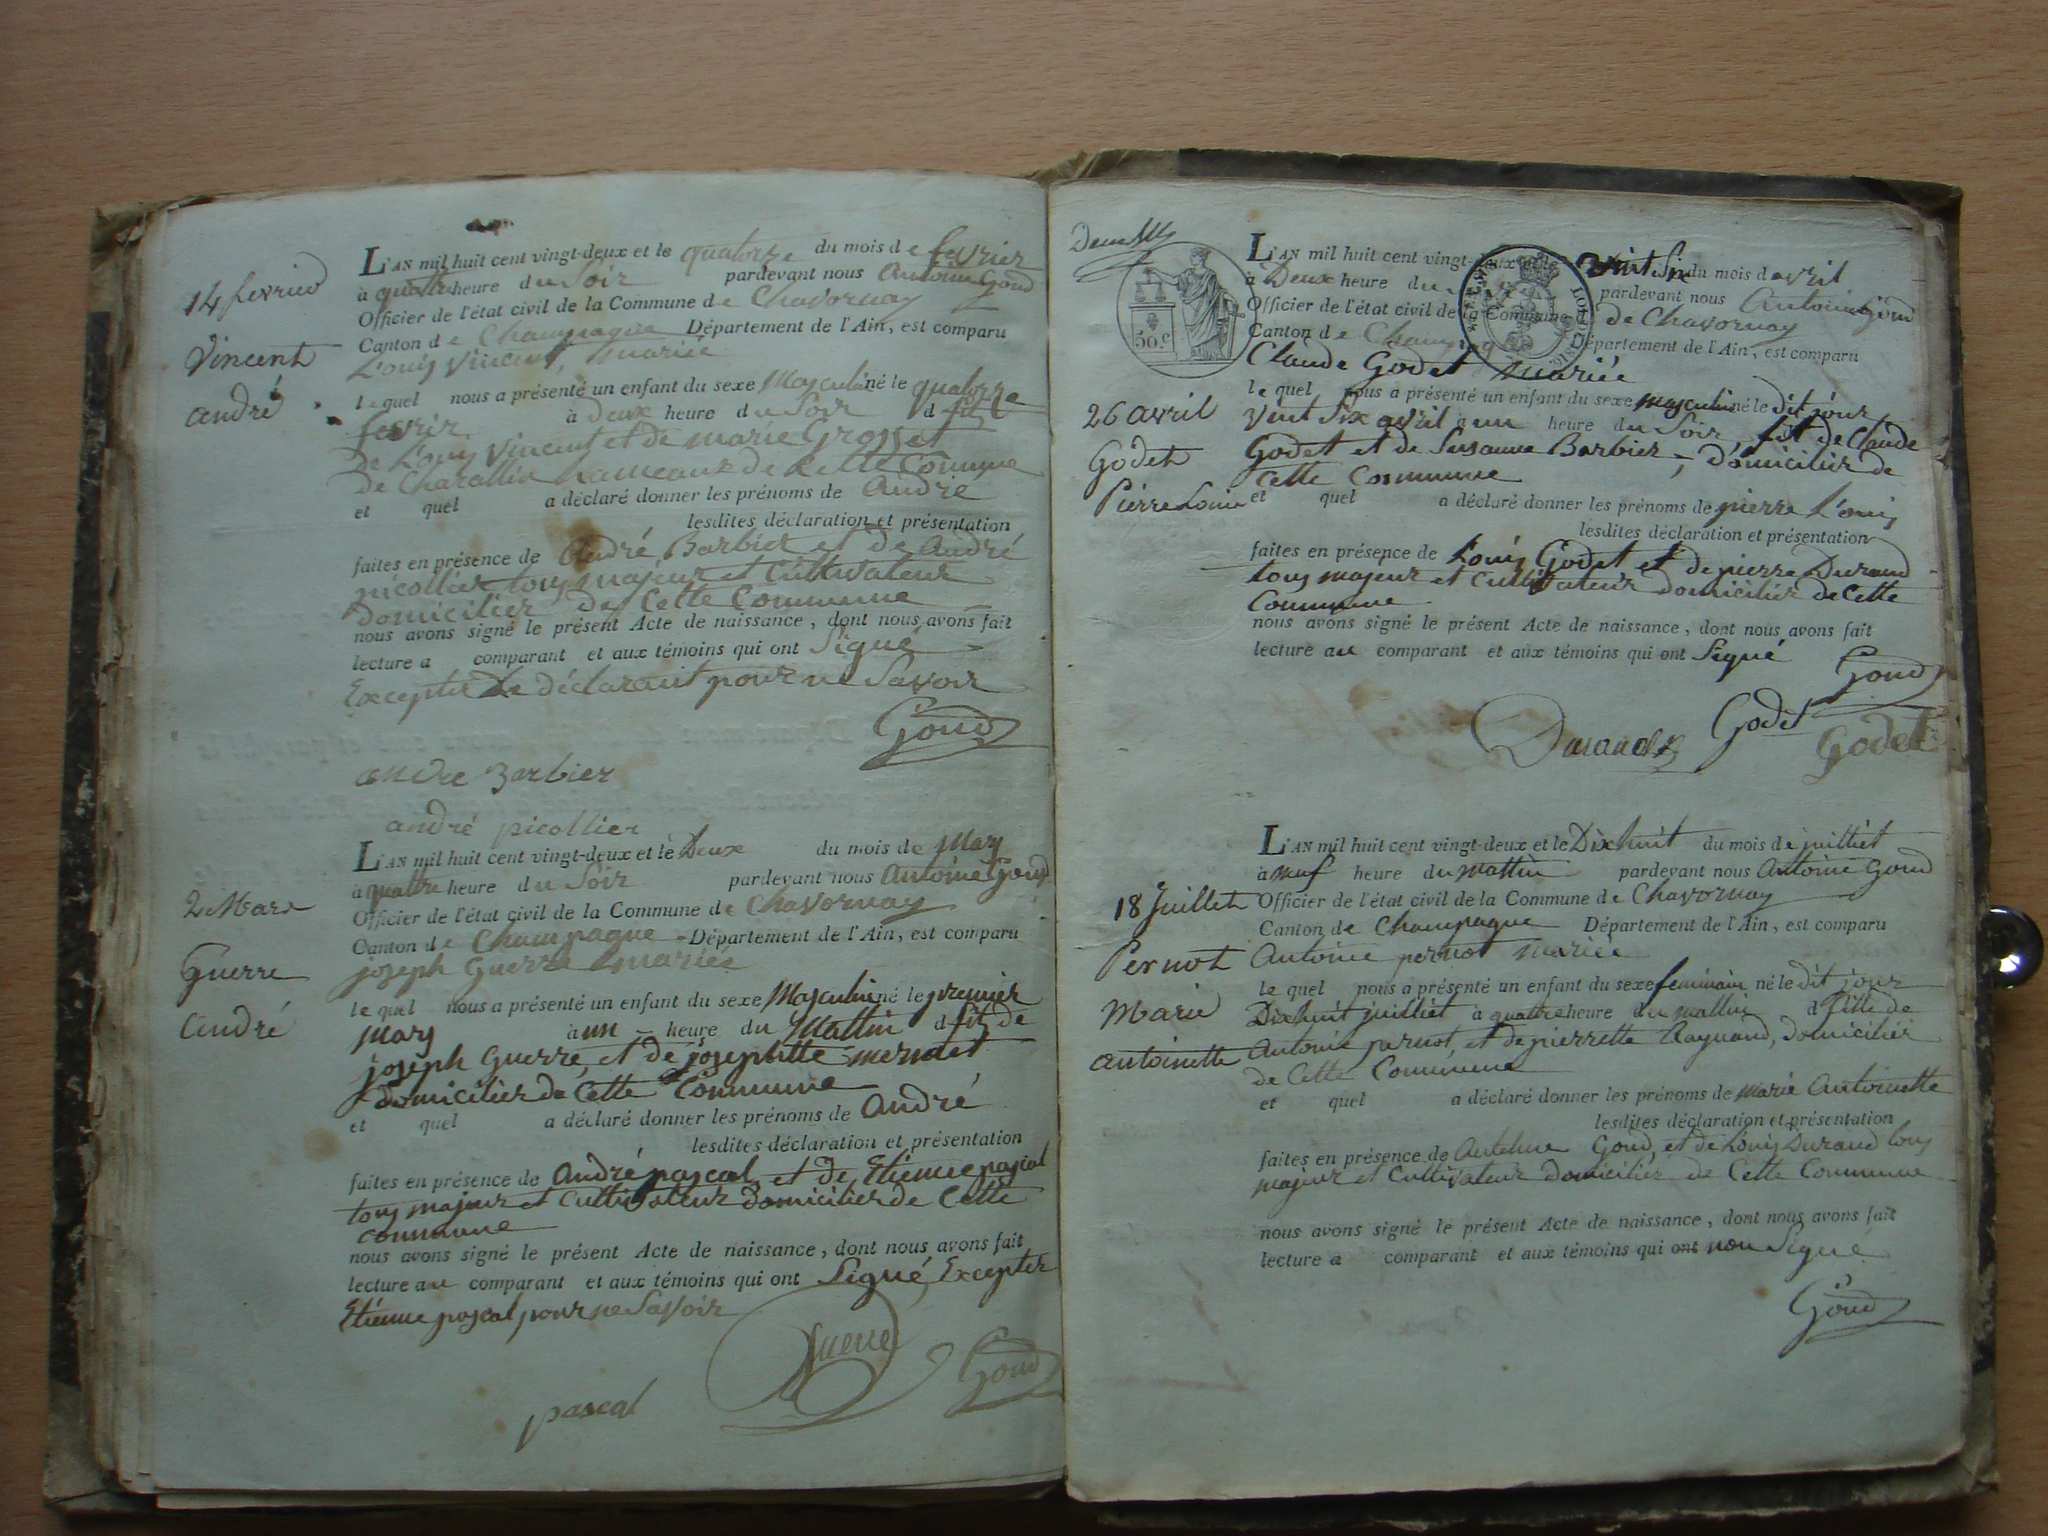 14 fevrier
Vincent
andré
L'AN mil huit cent vingt-deux et le quatorze du mois de fevrier
à quatre heure du Soir pardevant nous Antoine Goud
Officier de l'état civil de la Commune de Chavornay
Canton de Champagne Département de l'Ain, est comparu
Louis Vincent, mariée
le quel nous a présenté un enfant du sexe Masculin né le quatorze
fevrir à deux heure du Soir d fils
de Louis Vincent et de marie Grosset
de Charallin hameaux de Cette Commune
et quel a déclaré donner les prénoms de André
lesdites déclaration et présentation
faites en présence de André Barbier et de André
picollier tous majeur et Cultivateur
Domicilier de Cette Commune
nous avons signé le présent Acte de naissance, dont nous avons fait
lecture a comparant et aux témoins qui ont Signé
Excepter Le déclarant pour ne Savoir
Goud
andre Barbier
andré picollier
2 Mars
Guerre
André
L'AN mil huit cent vingt-deux et le Deux du mois de Mars
à quattre heure du Soir pardevant nous Antoine Goud
Officier de l'état civil de la Commune de Chavornay
Canton de Champagne Département de l'Ain, est comparu
joseph Guerre mariée
le quel nous a présenté un enfant du sexe Masculin né le premier
mars à un heure du Mattin d fils de
joseph Guerre, et de josephtte
domicilier de Cette Commune
et quel a déclaré donner les prénoms de André
lesdites déclaration et présentation
faites en présence de André pascal, et de Etienne pascal
tous majeur et Cultivateur domicilier de Cette
Commune
nous avons signé le présent Acte de naissance, dont nous avons fait
lecture au comparant et aux témoins qui ont Signé, Excepter
Etienne pascal pour ne Savoir
Guerre
Goud
pascal
50 c
26 avril
Godet
Pierre Louis
L'AN mil huit cent vingt-deux vint Six du mois d avril
à Deux heure du pardevant nous Antoine Goud
Officier de l'état civil de la Commune de Chavornay
Canton de Champagne Département de l'Ain, est comparu
Claude Godet mariée
le quel nous a présenté un enfant du sexe masculin né le dit jour
vint Six avril a un heure du Soir, fils de Claude
Godet et de Susanne Barbier, domicilier de
Cette Commune
et quel a déclaré donner les prénoms de pierre Louis
lesdites déclaration et présentation
faites en présence de Louis Godet et de pierre Durand
tous majeur et Cultivateur domicilier de Cette
Commune
nous avons signé le présent Acte de naissance, dont nous avons fait
lecture au comparant et aux témoins qui ont Signé
Goud
Durand Godet Godet
18 Juillet
Pernot
Marie
antoinette
L'AN mil huit cent vingt-deux et le Dix huit du mois de juilliet
à neuf heure du mattin pardevant nous Antoine Goud
Officier de l'état civil de la Commune de Chavornay
Canton de Champagne Département de l'Ain, est comparu
Antoine pernot mariée
le quel nous a présenté un enfant du sexe feminain né le dit jour
Dix huit juilliet à quattre heure du mattin d fille de
Antoine pernot, et de pierrette Raynaud, domicilier
de Cette Commune
et quel a déclaré donner les prénoms de marie Antoinette
lesdites déclaration et présentation
faites en présence de Antelme Goud, et de Louis Durand tous
majeur et Cultivateur domicilier de Cette Commune
nous avons signé le présent Acte de naissance, dont nous avons fait
lecture a comparant et aux témoins qui ont non Signé
Goud